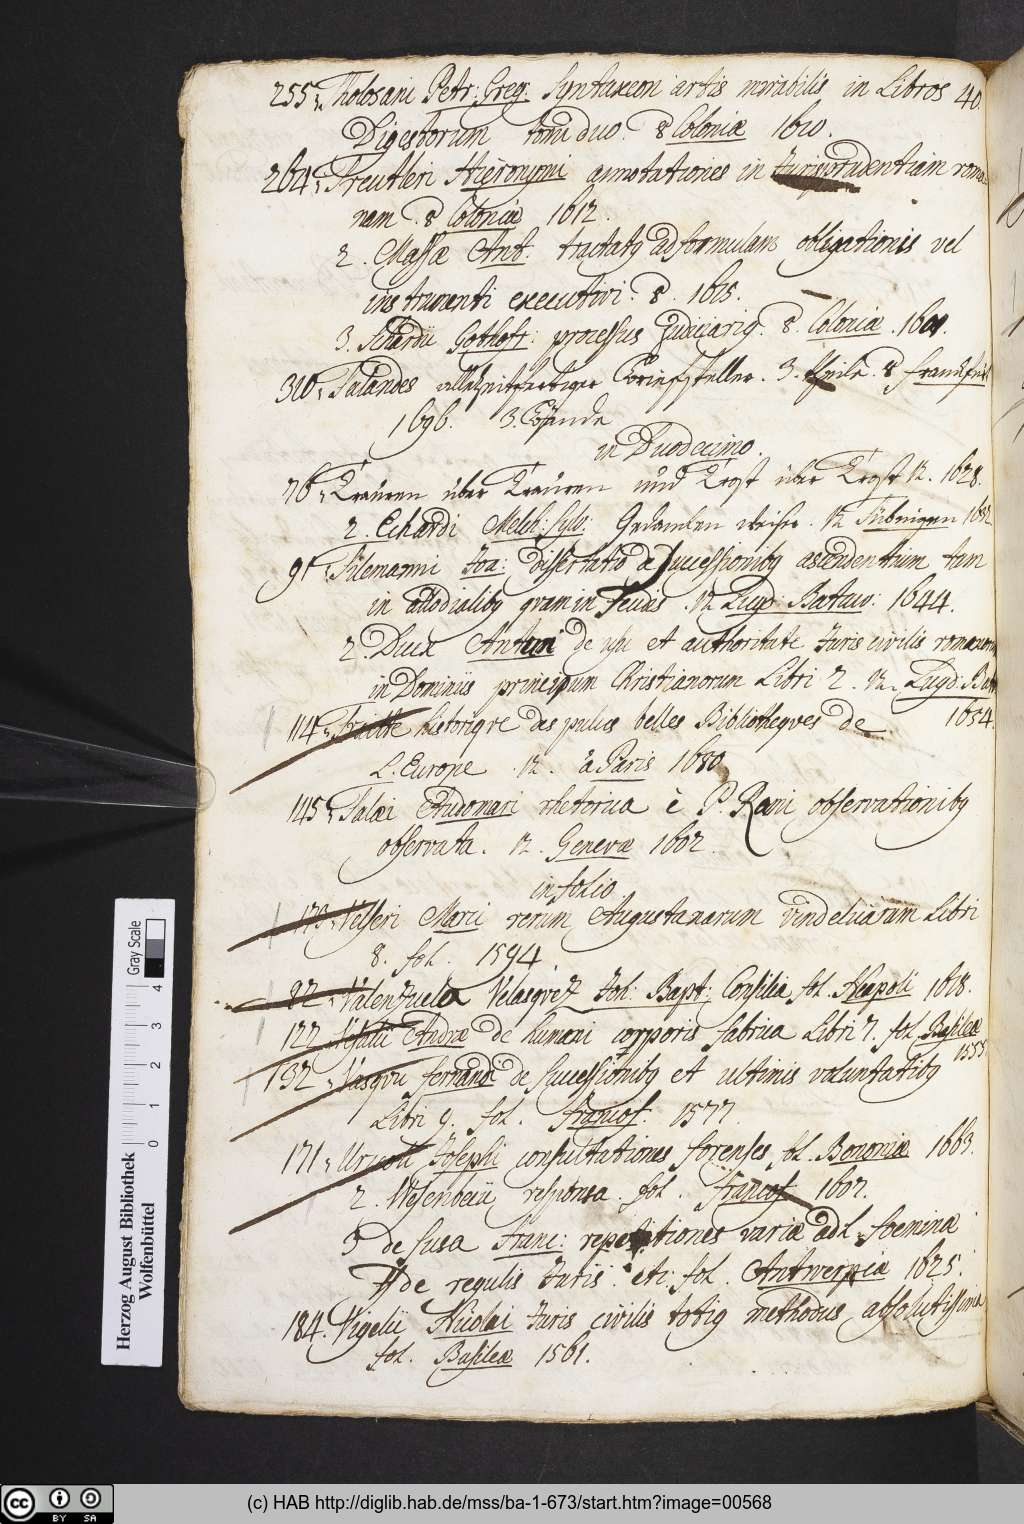 255. Tholosani Petr: Greg: Syntaxeon artis mirabilis in Libros 40
Digestorum tomi duo. 8 Coloniæ 1610.
264. Treutleri Hieronymi annotationes in Jurisprudentiam roma-
nam. 8 Coloniæ 1612.
2. Massæ Ant. tractatq ad formulam obligationis vel
instrumenti executivi. 8. 1615.
3. Schardii Gothofr: processus Judiciariq. 8. Coloniæ. 1601.
310. Talandes allezeitfertiger Briefsteller. 3. theile. 8 franckfurt
1696. 3. Bände
in Duodecimo.
76. Trauren über Trauren und Trost über Trost 12. 1628.
2. Eckardi Melch: Sylv: Gedancken 12 Tübingen
91. Tilemanni Joa: Dissertatio de successionibq ascendentium tam
in allodialibq quam in feudis. 12 Lugd: Batav: 1644.
2. Duck de usu et authoritate Juris civilis romanorum
in Dominiis principum Christianorum Libri 2. 12. Lugd: Bat.
1654.
114. historiqve des plus belles Bibliotheqves de
L. Europe 12. à Paris 1680
145. Talæi Audomari rhetorica è P. Rami observationibq
observata. 12. Genevæ 1602.
in folio
173. Velseri Marci rerum Augustanarum Vindelicarum Libri
8. fol. 1594
Valenzuela Velasqvez Joh: Bapt: Consilia fol. Neapoli 1618.
122. Vesalii Andreæ de humani corporis fabrica Libri 7. fol. Basileæ
1555
132. Vasqvii fernandi de Successionibq et ultimis voluntatibq
Libri 9. fol. Francof. 1577
171. Urceoli Josephi consultationes forenses fol. Bononiæ 1663.
2. Wesenbecii responsa. fol. francof 1602.
3 de Susa Franc: repetitiones variæ ad L. foeminæ
ff de regulis Juris. etc: fol. Antwerpiæ 1625.
184. Vigelii Nicolai Juris civilis totiq methodus absolutissima
fol. Basileæ 1561.
Herzog August Bibliothek
Wolfenbüttel
Gray Scale
0 1 2 3 4
(c) HAB http://diglib.hab.de/mss/ba-1-673/start.htm?image=00568
cc BY SA